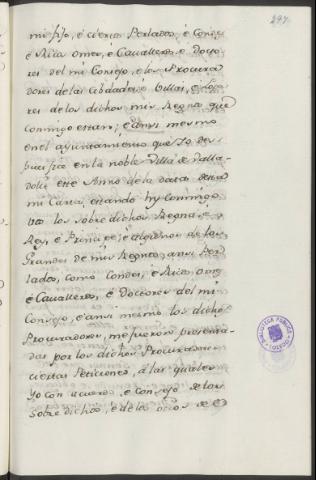 297.
mi fijo, é ciertos Perlados, é Condes
é Ricos omes, é Cavalleros, é Docto
res del mi Consejo, é los Procura
dores de las Cibdades é Villas, é
res de los dichos mis Regnos que
conmigo estan; é ansi mesmo
en el ayuntamiento que Yo des
pues fice en la noble Villa de Valla
dolit este Anno de la data desta
mi Carta, estando hy conmigo
los sobre dichos Regna é
Rey, é Principe, é algunos de los
Grandes de mis Regnos, ansi Per
lados, como Condes, é Ricos omes
é Cavalleros, é Doctores del mi
Consejo, é ansi mesmo los dichos
Procuradores, me fueron presenta
das por los dichos Procuradores
ciertas Peticiones, á las quales
Yo con acuerdo é Consejo de los
sobre dichos, é de los otros de el
BIBLIOTECA PUBLICA
TOLEDO